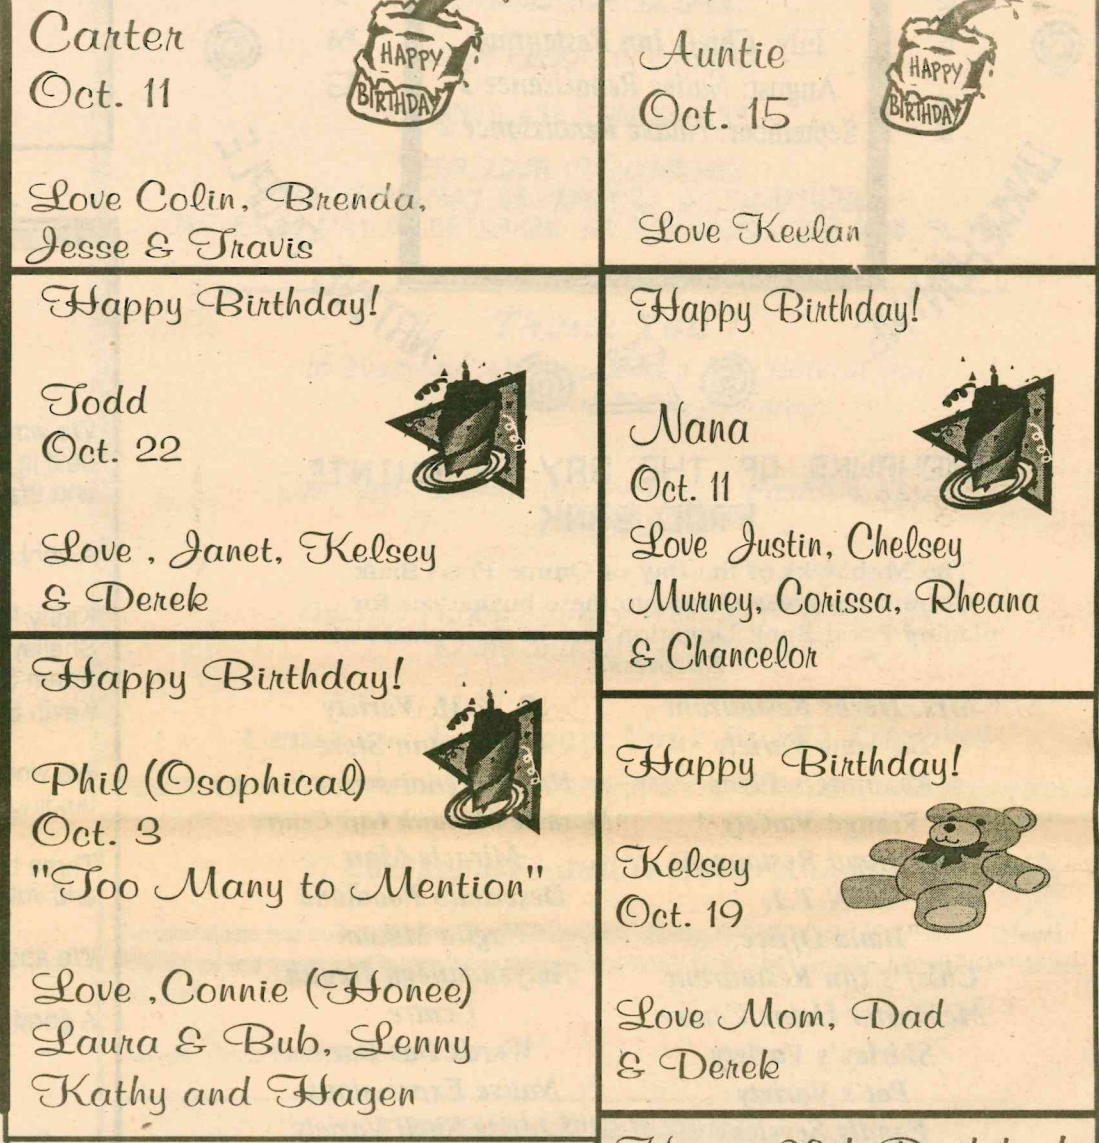 Carter
Oct. 11
HAPPY
BIRTHDAY
Love Colin, Brenda,
Jesse & Travis
Happy Birthday!
Todd
Oct. 22
Love , Janet, Kelsey
& Derek
Happy Birthday!
Phil (Osophical)
Oct. 3
"Too Many to Mention"
Love ,Connie (Honee)
Laura & Bub, Lenny
Kathy and Hagen
Auntie
Oct. 15
HAPPY
BIRTHDAY
Love Keelan
Happy Birthday!
Nana
Oct. 11
Love Justin, Chelsey
Murney, Corissa, Rheana
& Chancelor
Happy Birthday!
Kelsey
Oct. 19
Love Mom, Dad
& Derek